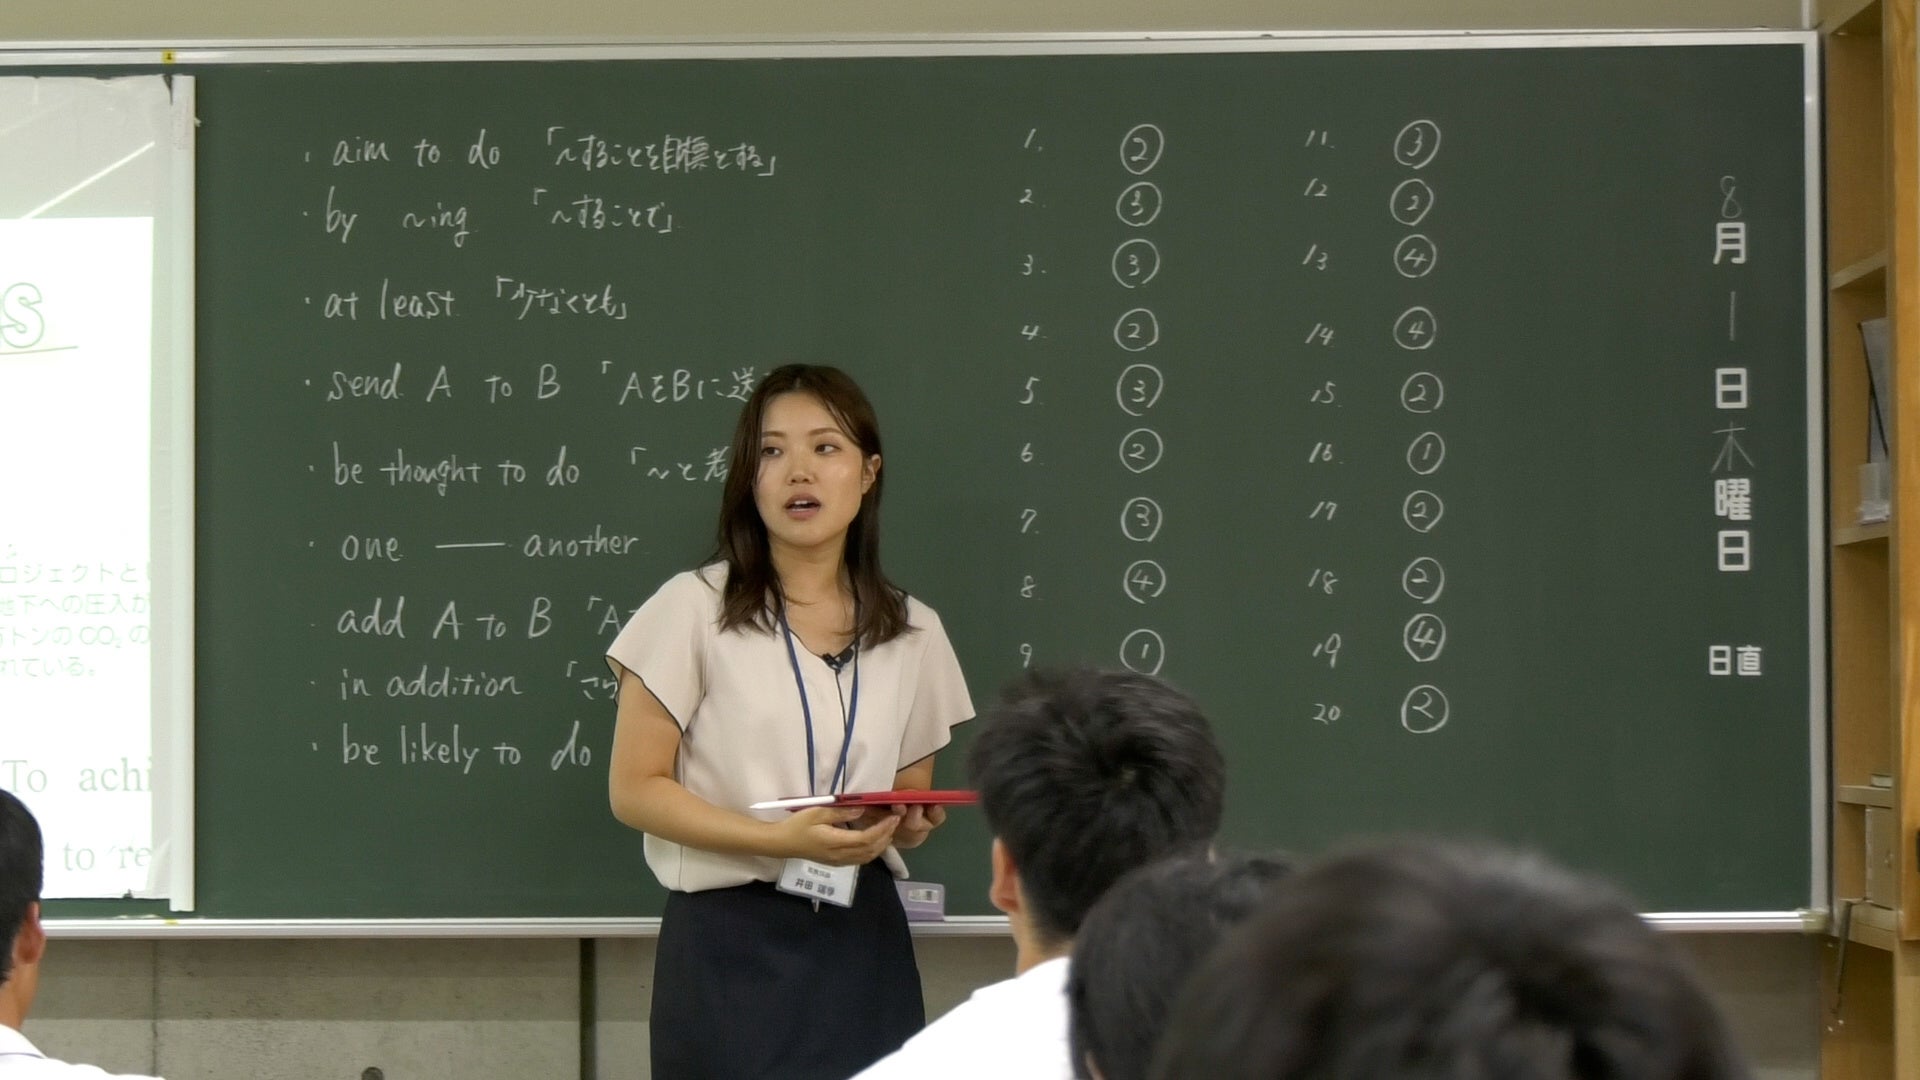 S
ロジェクトとい
地下への圧入が
万トンのCO₂の
れている。
To achi
to re
・aim to do 「〜することを目標とする」
・by 〜ing 「〜することで」
・at least 「少なくとも」
・send A to B 「AをBに送
・be thought to do 「〜と考
・one — another
・add A to B 「A
・in addition 「さら
・be likely to do
1. ②
2. ③
3. ③
4. ②
5. ③
6. ②
7. ③
8. ④
9. ①
11. ③
12 ②
13 ④
14 ④
15. ②
16. ①
17 ②
18 ②
19 ④
20 ②
8月1日木曜日
日直
井田